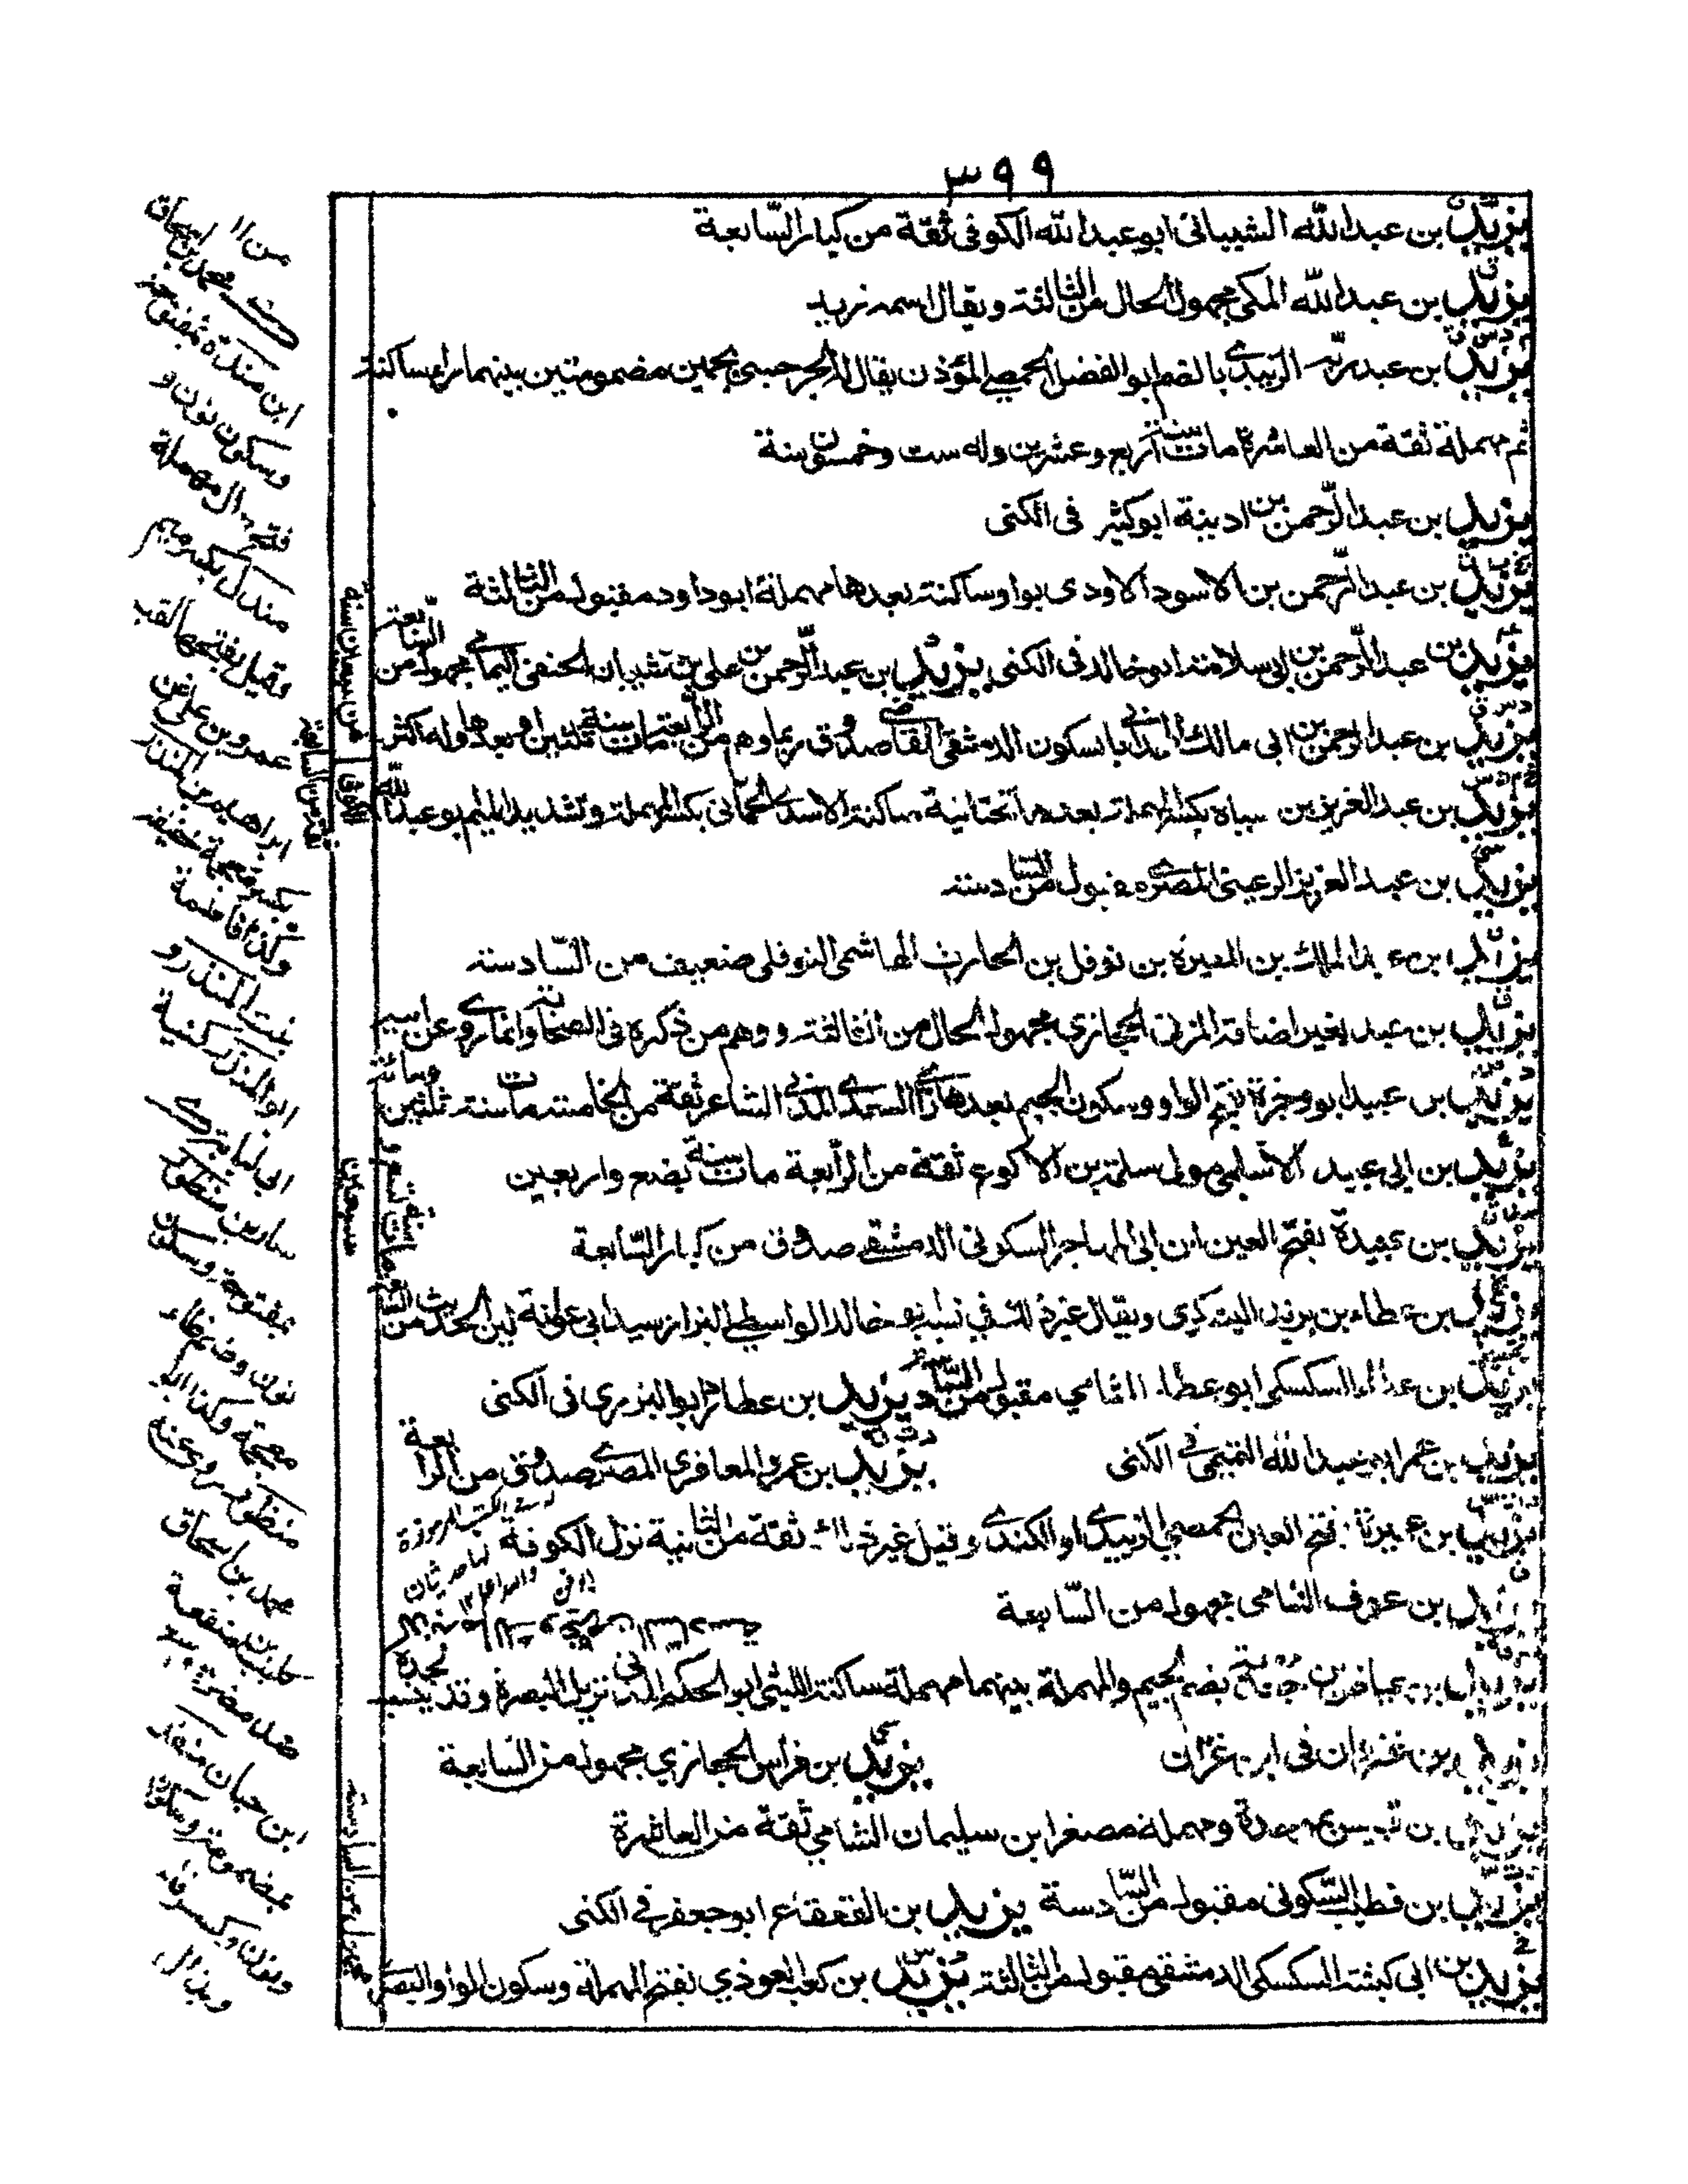 ٣٩٩
يزيد بن عبد الله الشيبانى ابو عبد الله الكوفى ثقة من كبار السابعة
يزيد بن عبد الله المكى مجهول الحال من الثالثة ويقال اسمه زيد
يزيد بن عبد ربه الزبيدى بالضم ابو الفضل الحمصى المؤذن يقال له الجرجسى بجيمين مضمومتين بينهما راء ساكنة
ثم مهملة ثقة من العاشرة مات سنة اربع وعشرين وله ست وخمسون سنة
يزيد بن عبد الرحمن بن اذينة ابو كثير فى الكنى
يزيد بن عبد الرحمن بن الاسود الاودى بواو ساكنة بعدها مهملة ابو داود مقبول من الثالثة
يزيد بن عبد الرحمن بن ابى سلامة ابو خالد فى الكنى يزيد بن عبد الرحمن بن على بن شيبان الحنفى اليمامى مجهول من السابعة
يزيد بن عبد الرحمن بن ابى مالك الهمدانى بالسكون الدمشقى القاضى صدوق ربما وهم من الرابعة مات سنة ثلثين او بعدها وله اكثر من سبعين سنة
يزيد بن عبد العزيز بن سياه بكسر المهملة بعدها تحتانية ساكنة الاسدى الحمانى بكسر المهملة وتشديد الميم ابو عبد الله الكوفى ثقة من السابعة
يزيد بن عبد العزيز الرعينى المصرى مقبول من السادسة
يزيد بن عبد الملك بن المغيرة بن نوفل بن الحارث الهاشمى النوفلى ضعيف من السادسة
يزيد بن عبد بغير اضافة المزنى الحجازى مجهول الحال من الثالثة ووهم من ذكره فى الصحابة وانما روى عن ابيه
يزيد بن عبيد ابو وجزة بفتح الواو وسكون الجيم بعدها زاى السعدى المدنى الشاعر ثقة من الخامسة مات سنة ثلثين ومائة
يزيد بن ابى عبيد الاسلمى مولى سلمة بن الاكوع ثقة من الرابعة مات سنة بضع واربعين
يزيد بن عبيدة بفتح العين ابن ابى المهاجر السكونى الدمشقى صدوق من كبار السابعة
يزيد بن عطاء بن يزيد اليشكرى ويقال غير ذلك فى نسبه ابو خالد الواسطى البزاز سيد ابى عوانة لين الحديث من السابعة مات سنة تسع وسبعين
يزيد بن عطاء السكسكى ابو عطاء الشامى مقبول من السادسة يزيد بن عطارد ابو البزرى فى الكنى
يزيد بن عمر بن عبد الله التميمى فى الكنى يزيد بن عمرو المعافرى المصرى صدوق من الرابعة
يزيد بن عميرة بفتح العين الحمصى الزبيدى او الكندى وقيل غير ذلك ثقة من الثانية نزل الكوفة
يزيد بن عوف الشامى مجهول من السابعة
يزيد بن عياض بن جعدبة بضم الجيم والمهملة بينهما مهملة ساكنة الليثى ابو الحكم المدنى نزيل البصرة وقد ينسب لجده
يزيد بن غزوان فى ابن غزوان يزيد بن فراس الحجازى مجهول من السابعة
يزيد بن قبيس بموحدة ومهملة مصغر ابن سليمان الشامى ثقة من العاشرة
يزيد بن قطيب السكونى مقبول من السادسة يزيد بن القعقاع ابو جعفر فى الكنى
يزيد بن ابى كبشة السكسكى الدمشقى مقبول من الثالثة يزيد بن كعب العوذى بفتح المهملة وسكون الواو البصرى مجهول من السادسة
محمد بن اسحاق
ابن مندة
وسكون نون و
مندل بكسر ميم
وقيل بفتحها لقب
عمرو بن على
ابراهيم بن المنذر
بكسر معجمة خفيفة
وكذا فاطمة
بنت المنذر و
ابو المنذر كنية
سيار بن منظور
بمفتوحة وسكون
نون وضم ظاء
معجمة وكذا
منظور روى عنه
محمد بن اسحاق
ضد مضرة
ابن حبان منقذ
بمضمومة وسكون
ونون وكسر قاف